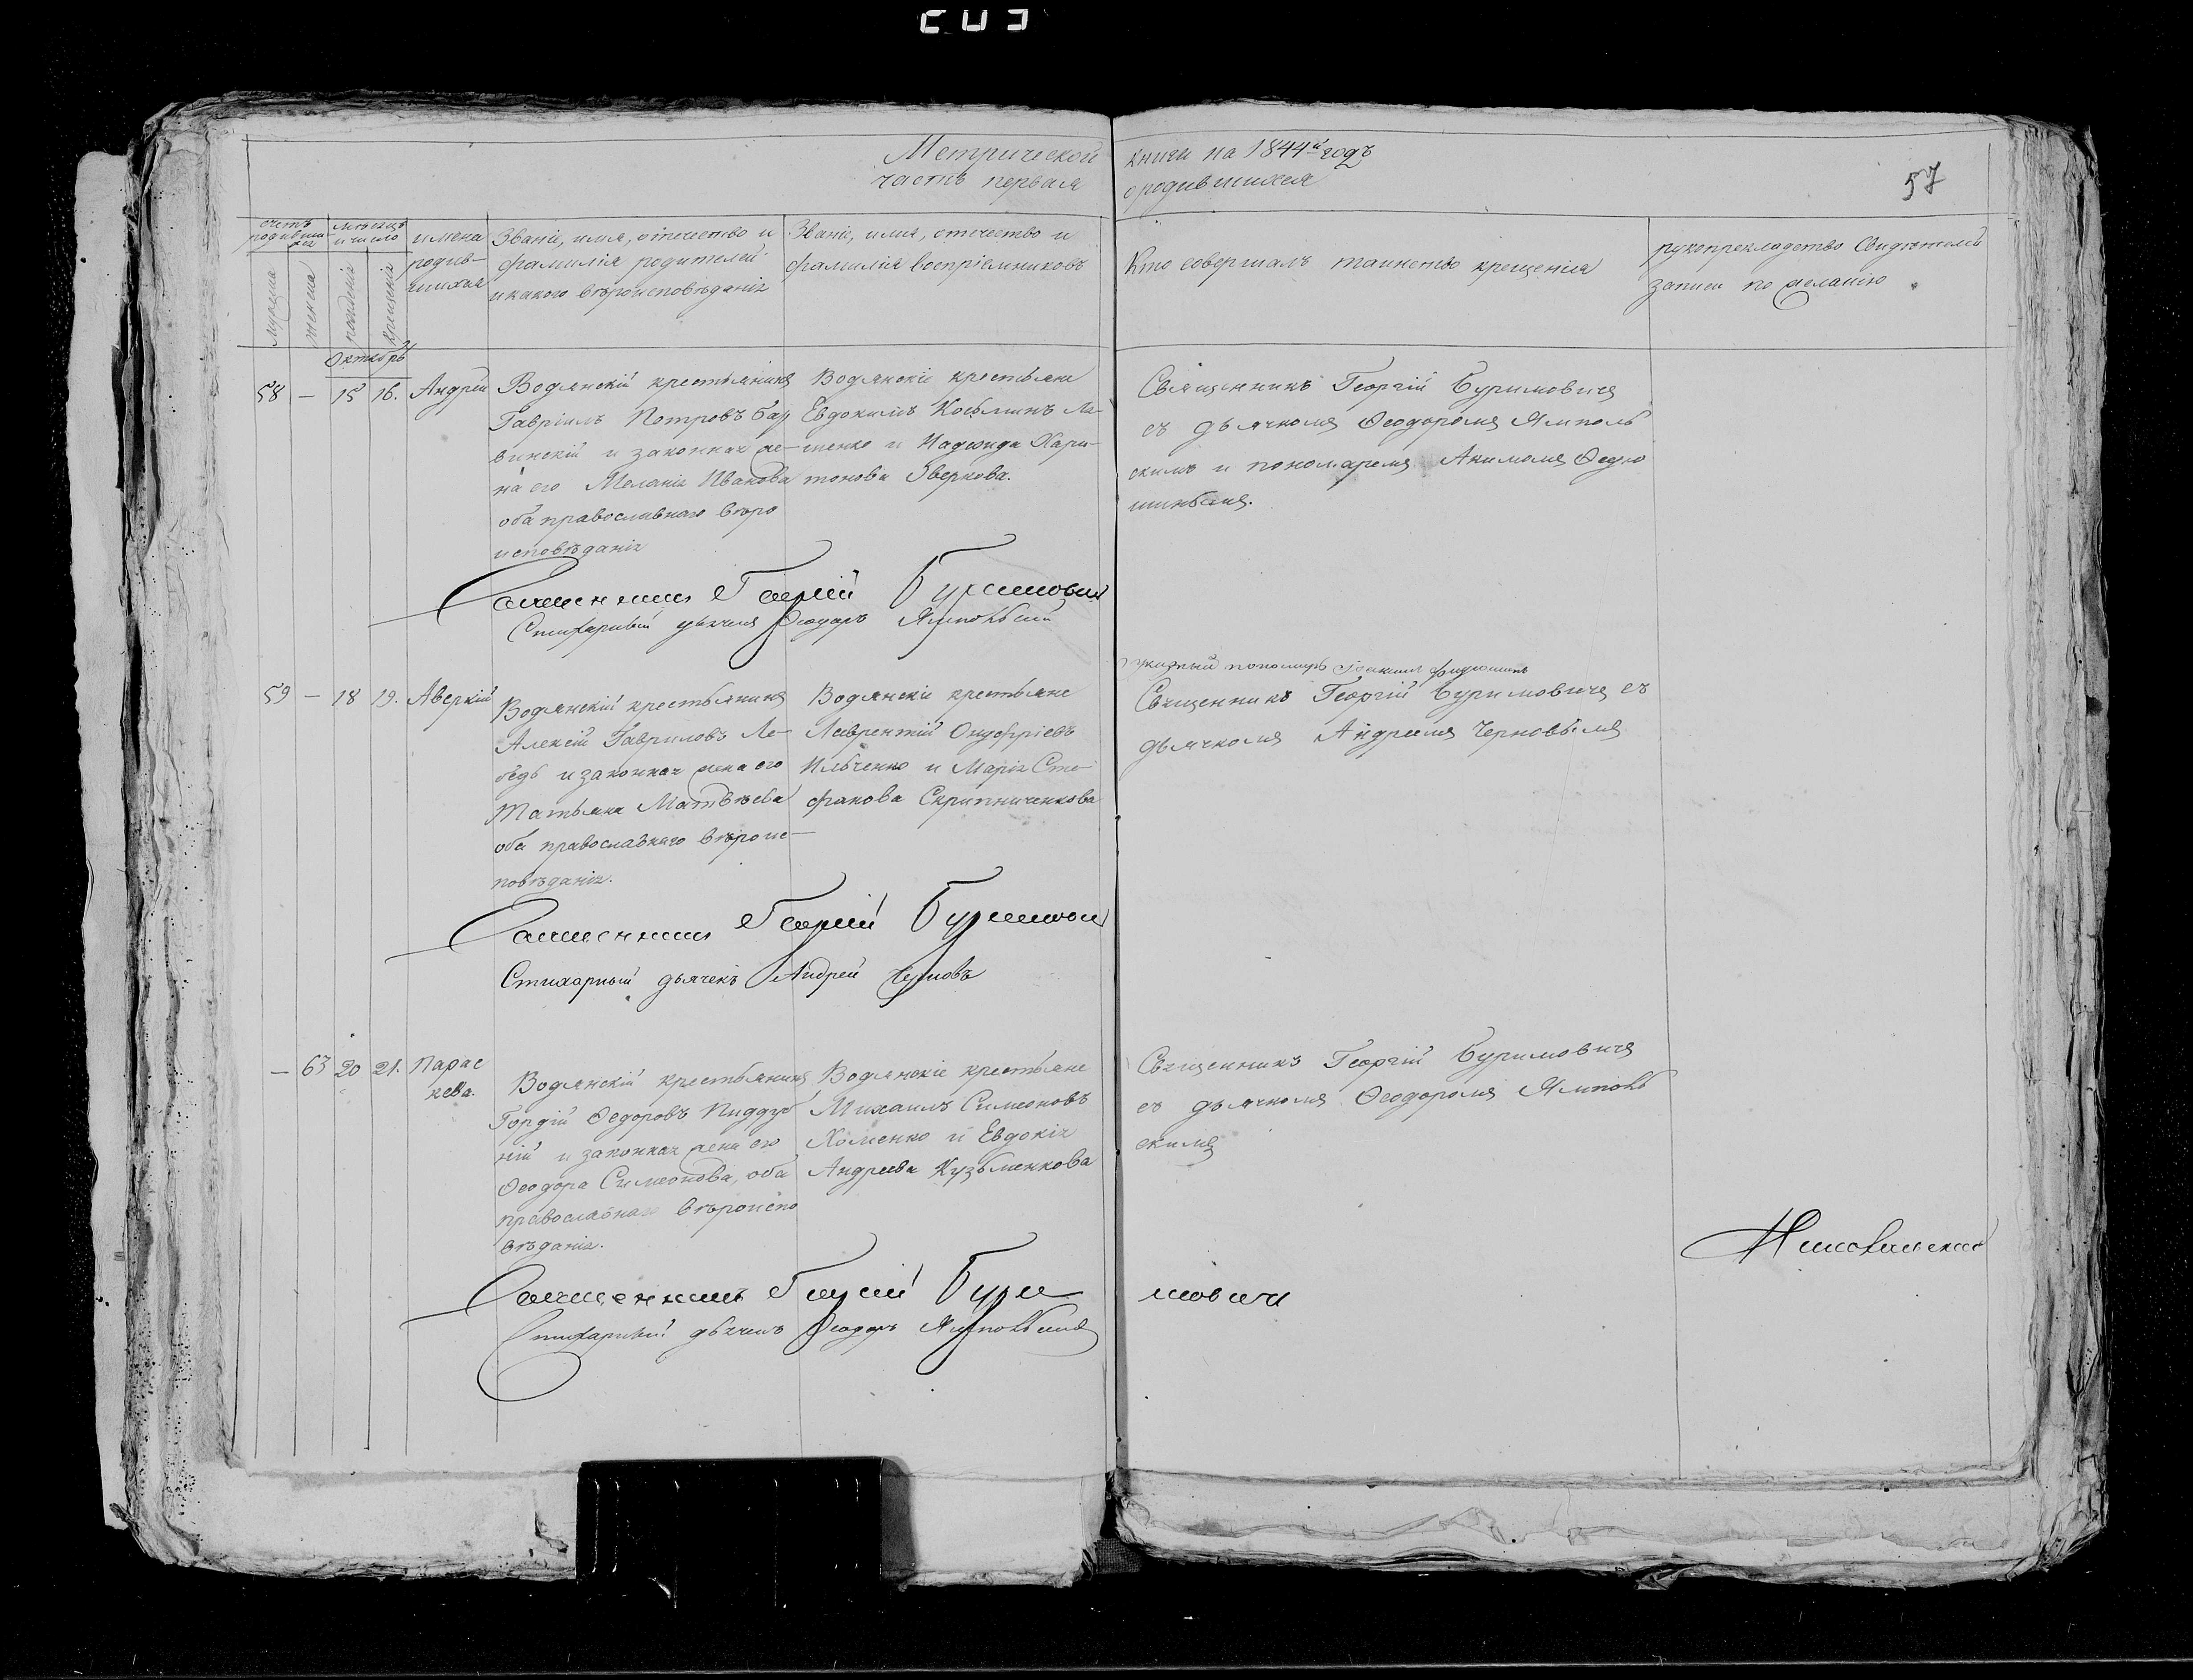 Метрической книги на 1844й годъ
часть первая о родившихся
57
счетъ родившихся
мѣсяцъ и число
имена родившихся
Званіе, имя, отечество и
фамилія родителей
и какого вѣроисповѣданія
Званіе, имя, отечество и
фамилія воспріемниковъ
Кто совершалъ таинство крещенія
рукоприкладство свидѣтелей
записи по желанію
мужеска
женска
рожденія
крещенія
Октябрь
58 — 15 16. Андрей
Водянскій крестьянинъ
Гавріилъ Петровъ
и законная же-
на его Меланія Иванова
оба православнаго вѣро
исповѣданія
Водянскіе крестьяне
Евдокимъ Косьминъ Ля-
шенко и Надежда Хари-
тонова Зверкова.
Священникъ Георгій Буримовичъ
съ дьячкомъ Ѳеодоромъ Ямполь
скимъ и пономаремъ Акимомъ Ѳедю
шинымъ.
Священникъ Георгій Буримовичъ
Стихарный дьячекъ Ѳеодоръ Ямпольскій
пономарь
59 — 18 19. Аверкій
Водянскій крестьянинъ
Алексій Гавриловъ Ле-
бедь и законная жена его
Татьяна Матвѣева
оба православнаго вѣроис-
повѣданія.
Водянскіе крестьяне
Лаврентій Онуфріевъ
Ильченко и Марія Сте-
фанова Скрипниченкова
Священникъ Георгій Буримовичъ съ
дьячкомъ Андреемъ Черновымъ
Священникъ Георгій Буримович
Стихарный дьячекъ Андрей Черновъ
— 63 20 21. Парас
кева.
Водянскій крестьянинъ
Гордій Ѳедоровъ Пиддуб
ній и законная жена его
Ѳеодора Симеонова, оба
православнаго вѣроиспо
вѣданія.
Водянскіе крестьяне
Михаилъ Симеоновъ
Хоменко и Евдокія
Андреева Кузьменкова
Священникъ Георгій Буримовичъ
съ дьячкомъ Ѳеодоромъ Ямполь
скимъ
Священникъ Георгій Бури мовичъ
Стихарный дьячекъ Ѳеодоръ Ямпольскій